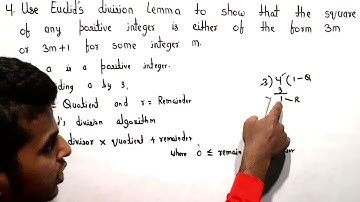 4. Use Euclid's division Lemma to show that the square
of any positive integer is either of the form 3m
or 3m+1 for some integer m.
a is a positive integer.
ding a by 3,
3) 4 ( 1 - Q
3
1 - R
Quotient and r = Remainder
d's division algorithm
divisor x quotient + remainder
where 0 ≤ remain